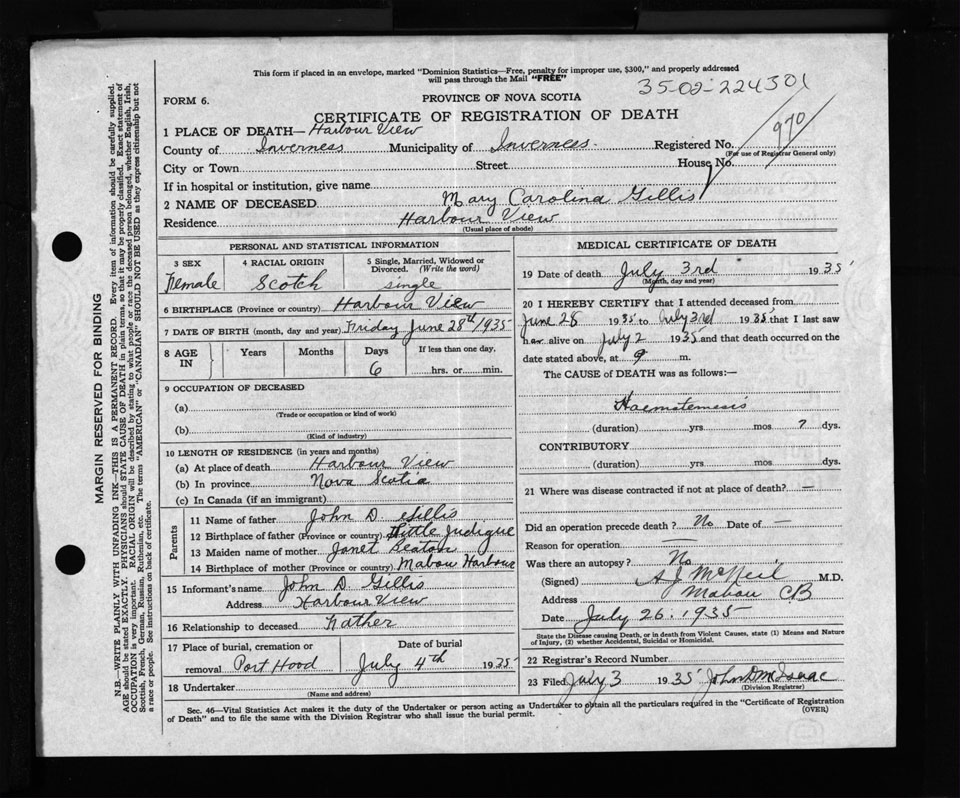 This form if placed in an envelope, marked "Dominion Statistics—Free, penalty for improper use, $300," and properly addressed
will pass through the Mail "FREE"
35-02-224301
FORM 6.
PROVINCE OF NOVA SCOTIA
CERTIFICATE OF REGISTRATION OF DEATH
970
1 PLACE OF DEATH— Harbour View
County of Inverness Municipality of Inverness. Registered No.
(For use of Registrar General only)
City or Town Street House No.
If in hospital or institution, give name
2 NAME OF DECEASED Mary Carolina Gillis
Residence Harbour View
(Usual place of abode)
PERSONAL AND STATISTICAL INFORMATION
3 SEX 4 RACIAL ORIGIN 5 Single, Married, Widowed or
Divorced. (Write the word)
Female Scotch single
6 BIRTHPLACE (Province or country) Harbour View
7 DATE OF BIRTH (month, day and year) Friday June 28th/1935
8 AGE IN Years Months Days If less than one day,
6 hrs. or min.
9 OCCUPATION OF DECEASED
(a)
(Trade or occupation or kind of work)
(b)
(Kind of industry)
10 LENGTH OF RESIDENCE (in years and months)
(a) At place of death Harbour View
(b) In province Nova Scotia
(c) In Canada (if an immigrant)
Parents
11 Name of father John D. Gillis
12 Birthplace of father (Province or country) Little Judique
13 Maiden name of mother Janet Beaton
14 Birthplace of mother (Province or country) Mabou Harbour
15 Informant's name John D Gillis
Address Harbour View
16 Relationship to deceased Father
17 Place of burial, cremation or Date of burial
removal Port Hood July 4th 1935
18 Undertaker
(Name and address)
MEDICAL CERTIFICATE OF DEATH
19 Date of death July 3rd 1935
(Month, day and year)
20 I HEREBY CERTIFY that I attended deceased from
June 28 1935 to July 3rd 1935 that I last saw
her alive on July 2 1935 and that death occurred on the
date stated above, at 9 m.
The CAUSE of DEATH was as follows:—
Haemetemesis
(duration) yrs mos 7 dys.
CONTRIBUTORY
(duration) yrs. mos. dys.
21 Where was disease contracted if not at place of death? —
Did an operation precede death? No Date of —
Reason for operation —
Was there an autopsy? No
(Signed) A J McNeil M.D.
Address Mabou CB
Date July 26. 1935
State the Disease causing Death, or in death from Violent Causes, state (1) Means and Nature
of Injury, (2) whether Accidental, Suicidal or Homicidal.
22 Registrar's Record Number
23 Filed July 3 1935 John D McIsaac
(Division Registrar)
Sec. 46—Vital Statistics Act makes it the duty of the Undertaker or person acting as Undertaker to obtain all the particulars required in the "Certificate of Registration
of Death" and to file the same with the Division Registrar who shall issue the burial permit. (OVER)
MARGIN RESERVED FOR BINDING
N.B.—WRITE PLAINLY WITH UNFADING INK—THIS IS A PERMANENT RECORD. Every item of information should be carefully supplied.
AGE should be stated EXACTLY. PHYSICIANS should STATE CAUSE OF DEATH in plain terms, so that it may be properly classified. Exact statement of
OCCUPATION is very important. RACIAL ORIGIN will be described by stating to what people or race the deceased person belonged, whether English, Irish,
Scottish, French, German, Russian, Ruthenian, etc. The terms "AMERICAN" or "CANADIAN" SHOULD NOT BE USED as they express citizenship but not
a race or people. See instructions on back of certificate.